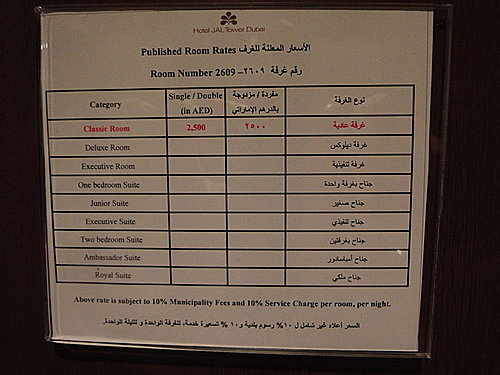 Hotel JAL Tower Dubai
Published Room Rates الأسعار المعلنة للغرف
Room Number 2609 – رقم غرفة ٢٦٠٩
Category Single / Double (in AED) مفردة / مزدوجة بالدرهم الإماراتي نوع الغرفة
Classic Room 2,500 ٢٥٠٠ غرفة عادية
Deluxe Room غرفة ديلوكس
Executive Room غرفة تنفيذية
One bedroom Suite جناح بغرفة واحدة
Junior Suite جناح صغير
Executive Suite جناح تنفيذي
Two bedroom Suite جناح بغرفتين
Ambassador Suite جناح أمباسادور
Royal Suite جناح ملكي
Above rate is subject to 10% Municipality Fees and 10% Service Charge per room, per night.
السعر أعلاه غير شامل ل ١٠% رسوم بلدية و ١٠% تسعيرة خدمة، للغرفة الواحدة و لليلة الواحدة.